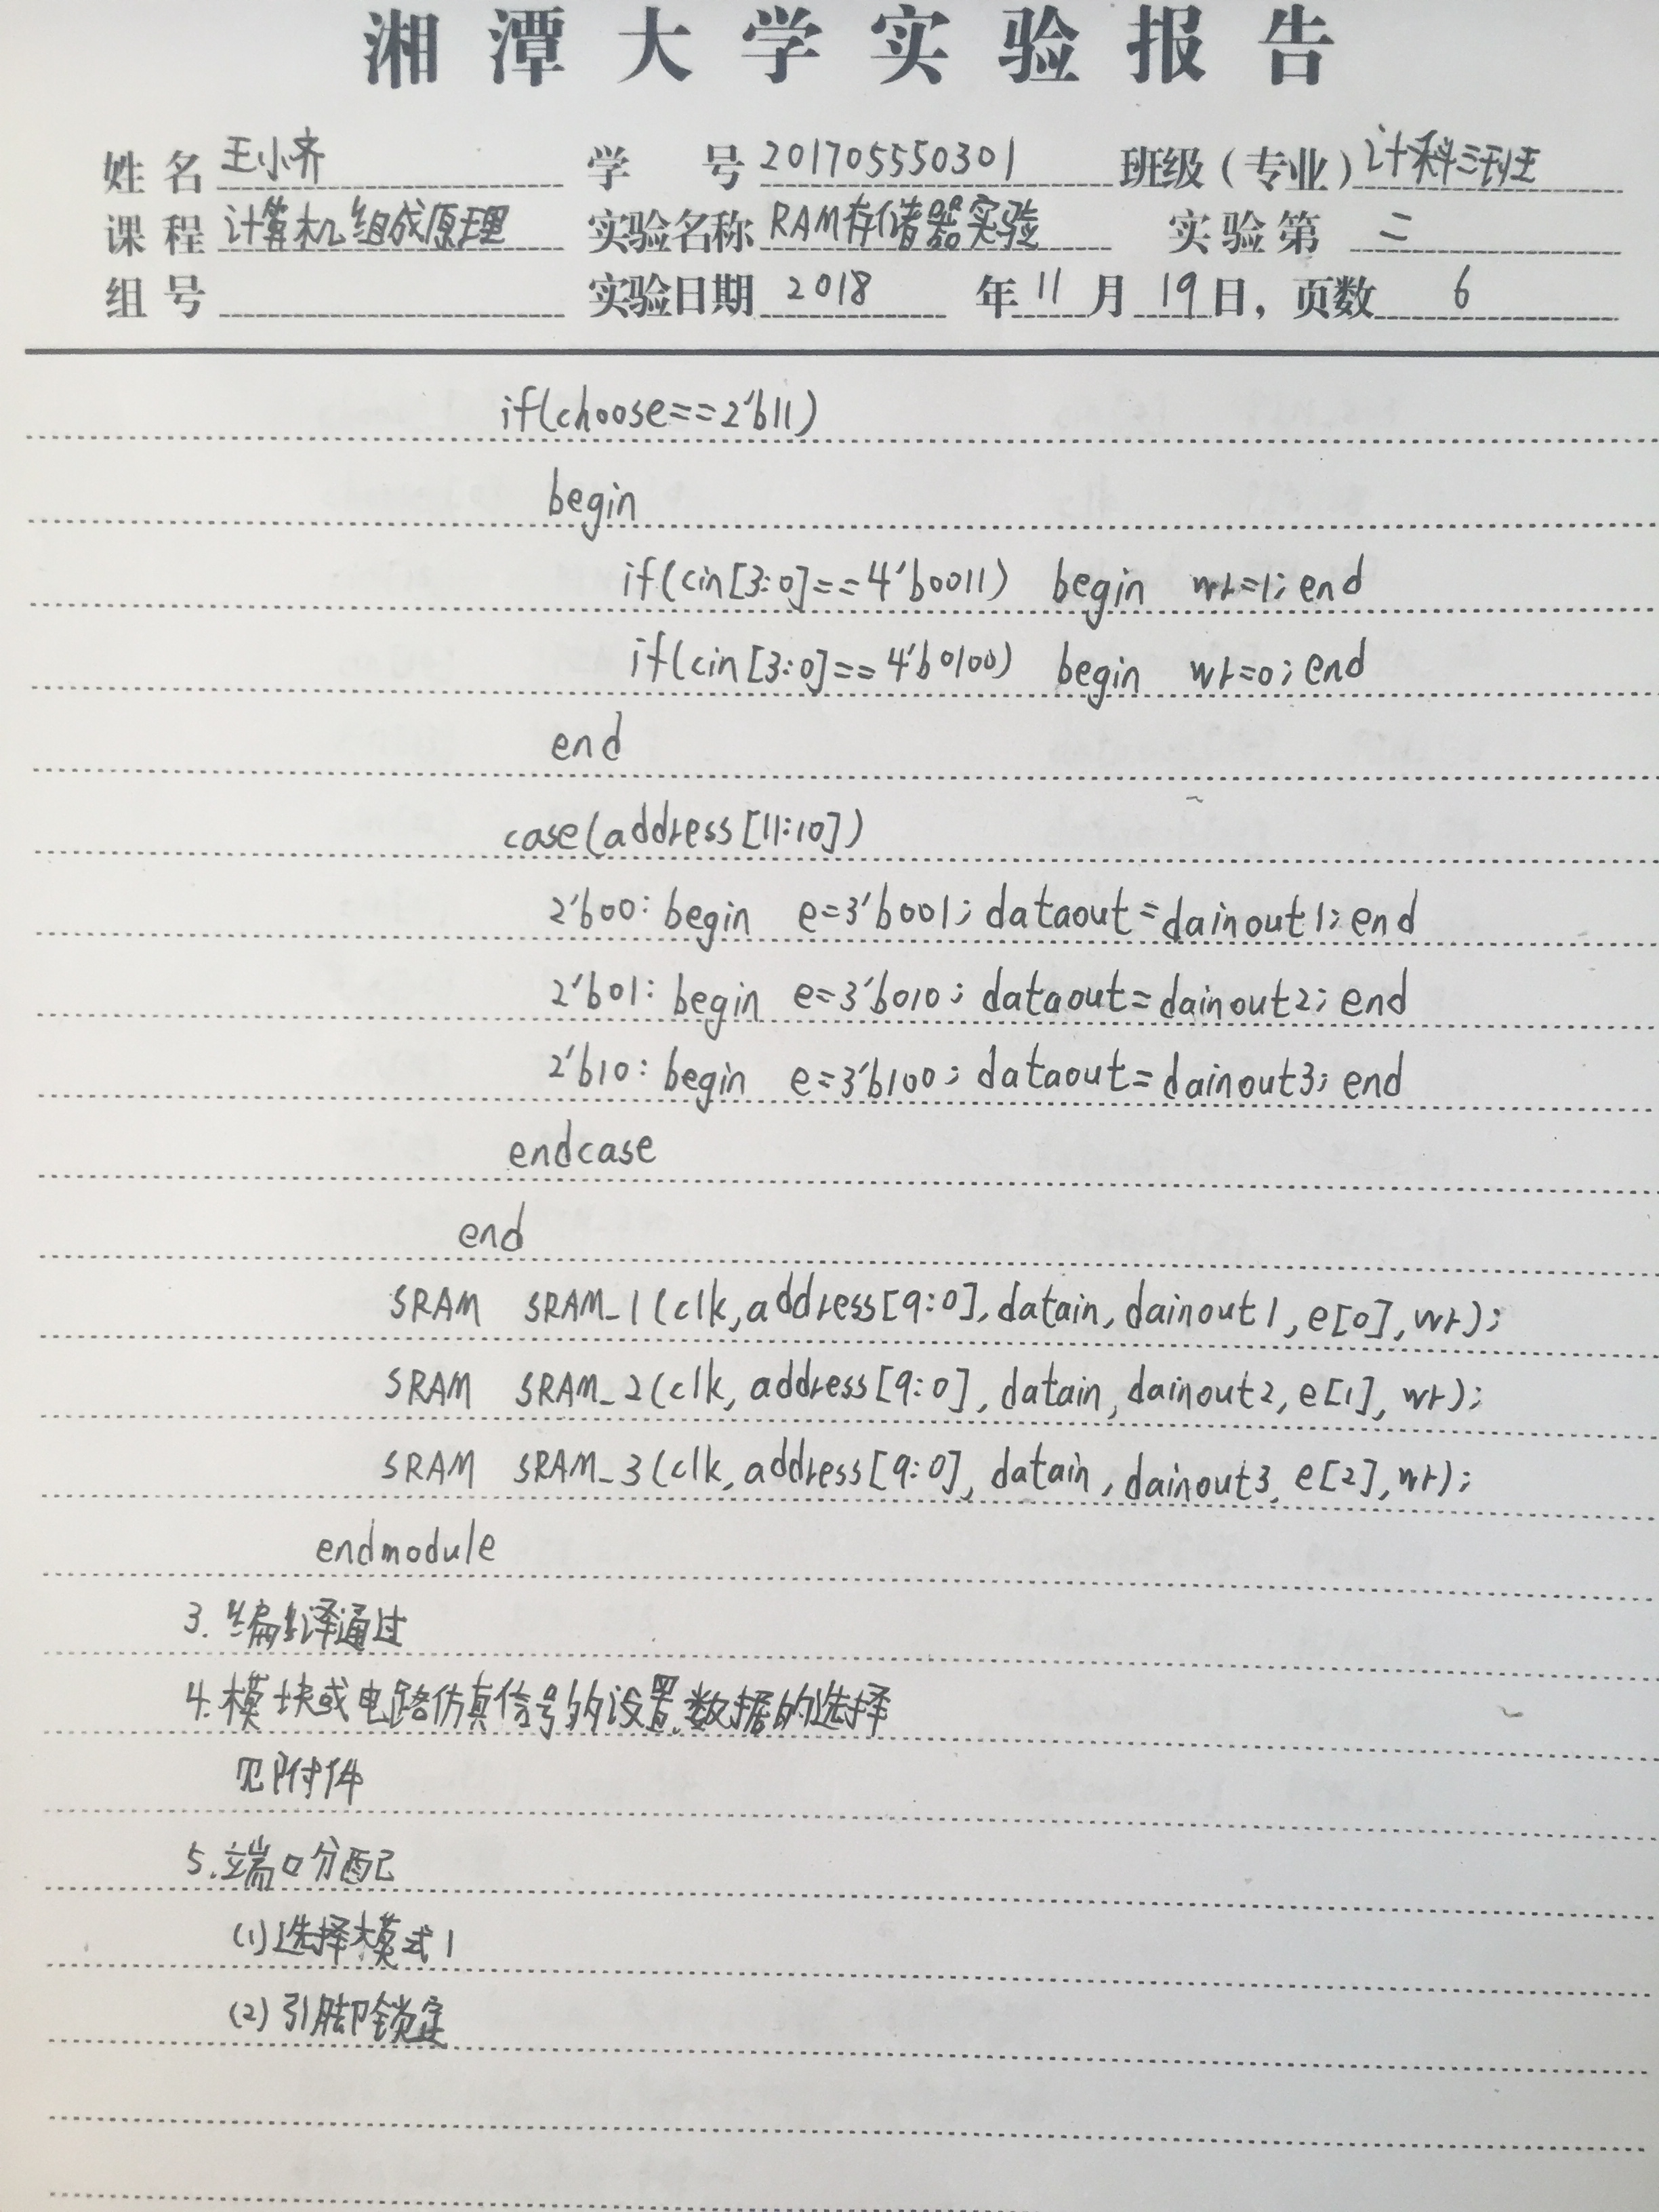 湘潭大学实验报告
姓名 王小齐 学号 201705550301 班级(专业) 计科三班
课程 计算机组成原理 实验名称 RAM存储器实验 实验第 二
组号 实验日期 2018 年 11 月 19 日, 页数 6
if(choose==2'b11)
begin
if(cin[3:0]==4'b0011) begin wr=1; end
if(cin[3:0]==4'b0100) begin wr=0; end
end
case(address[11:10])
2'b00: begin e=3'b001; dataout=dainout1; end
2'b01: begin e=3'b010; dataout=dainout2; end
2'b10: begin e=3'b100; dataout=dainout3; end
endcase
end
SRAM SRAM_1(clk,address[9:0],datain,dainout1,e[0],wr);
SRAM SRAM_2(clk,address[9:0],datain,dainout2,e[1],wr);
SRAM SRAM_3(clk,address[9:0],datain,dainout3,e[2],wr);
endmodule
3. 编译通过
4. 模块或电路仿真信号的设置、数据的选择
见附件
5. 端口分配
(1) 选择模式1
(2) 引脚锁定